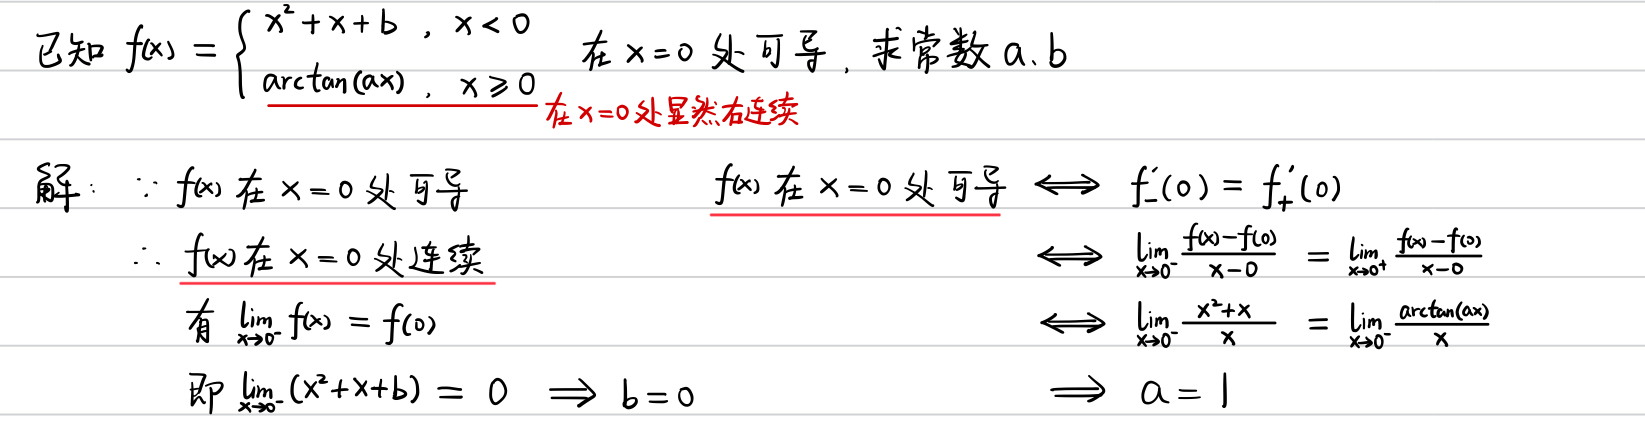 已知 f(x) = { x² + x + b , x < 0
arctan(ax) , x ⩾ 0
在 x = 0 处可导, 求常数 a、b
在 x = 0 处显然右连续
解: ∵ f(x) 在 x = 0 处可导
∴ f(x) 在 x = 0 处连续
有 lim_{x→0⁻} f(x) = f(0)
即 lim_{x→0⁻} (x² + x + b) = 0 ⟹ b = 0
f(x) 在 x = 0 处可导 ⟺ f₋′(0) = f₊′(0)
⟺ lim_{x→0⁻} (f(x) − f(0))/(x − 0) = lim_{x→0⁺} (f(x) − f(0))/(x − 0)
⟺ lim_{x→0⁻} (x² + x)/x = lim_{x→0⁻} arctan(ax)/x
⟹ a = 1